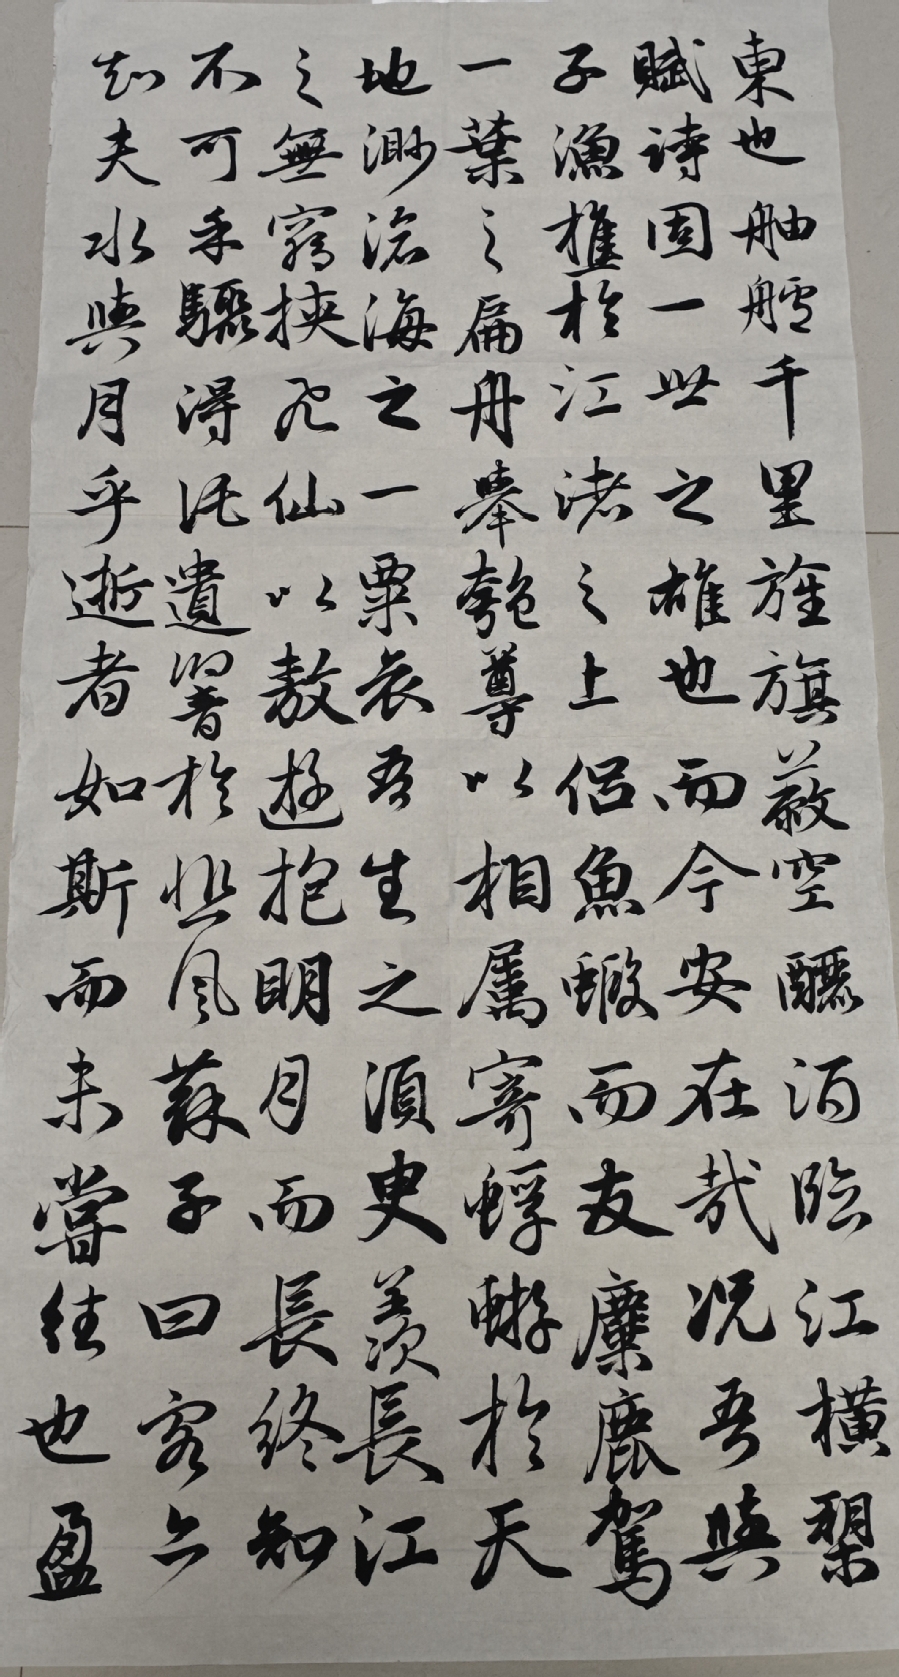 東也舳艫千里旌旗蔽空釃酒臨江橫槊
賦詩固一世之雄也而今安在哉況吾與
子漁樵於江渚之上侶魚蝦而友麋鹿駕
一葉之扁舟舉匏尊以相屬寄蜉蝣於天
地渺滄海之一粟哀吾生之須臾羨長江
之無窮挾飛仙以敖遊抱明月而長終知
不可乎驟得託遺響於悲風蘇子曰客亦
知夫水與月乎逝者如斯而未嘗往也盈